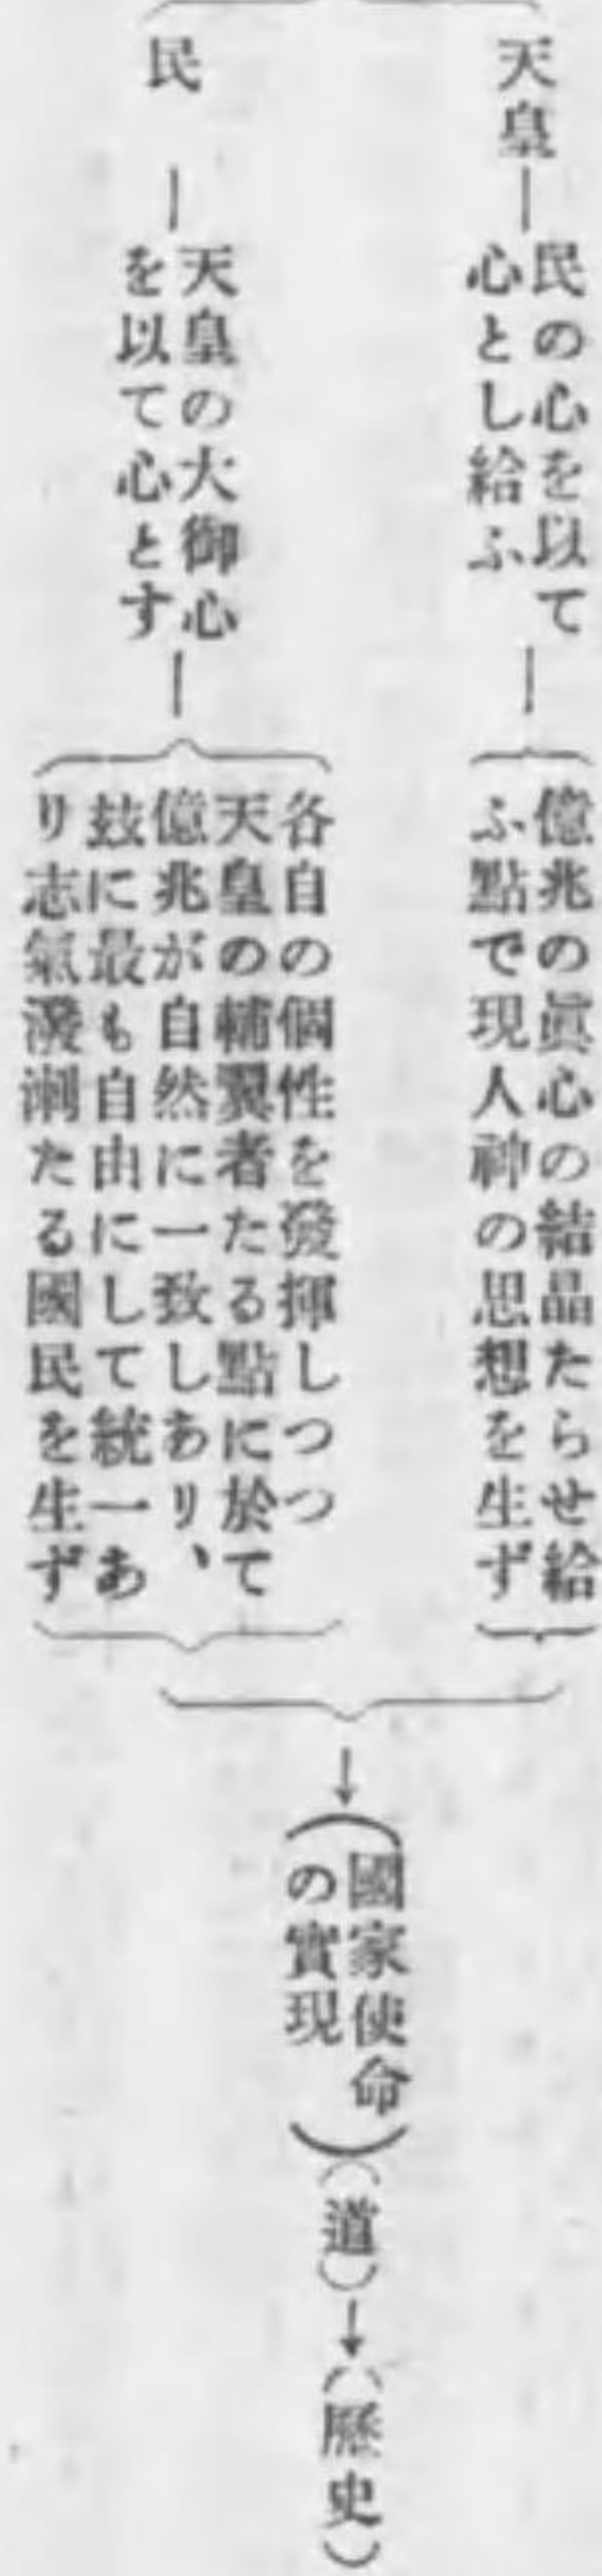 天皇―
民の心を以て
心とし給ふ―
億兆の眞心の結晶たらせ給
ふ點で現人神の思想を生ず
民―
天皇の大御心
を以て心とす―
各自の個性を發揮しつつ
天皇の輔翼者たる點に於て
億兆が自然に一致しあり、
玆に最も自由にして統一あ
り志氣潑溂たる國民を生ず
→(國家使命
の實現)(道)→(歷史)